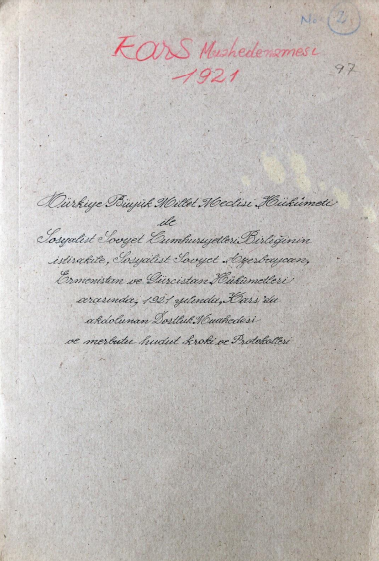 No 2.
KARS Muahedenamesi
1921
97
Türkiye Büyük Millet Meclisi Hükûmeti
ile
Sosyalist Sovyet Cumhuriyetleri Birliğinin
iştirakile, Sosyalist Sovyet Azerbaycan,
Ermenistan ve Gürcistan Hükûmetleri
arasında, 1921 yılında, Kars'da
akdolunan Dostluk Muahedesi
ve merbutu hudut kroki ve Protokolleri